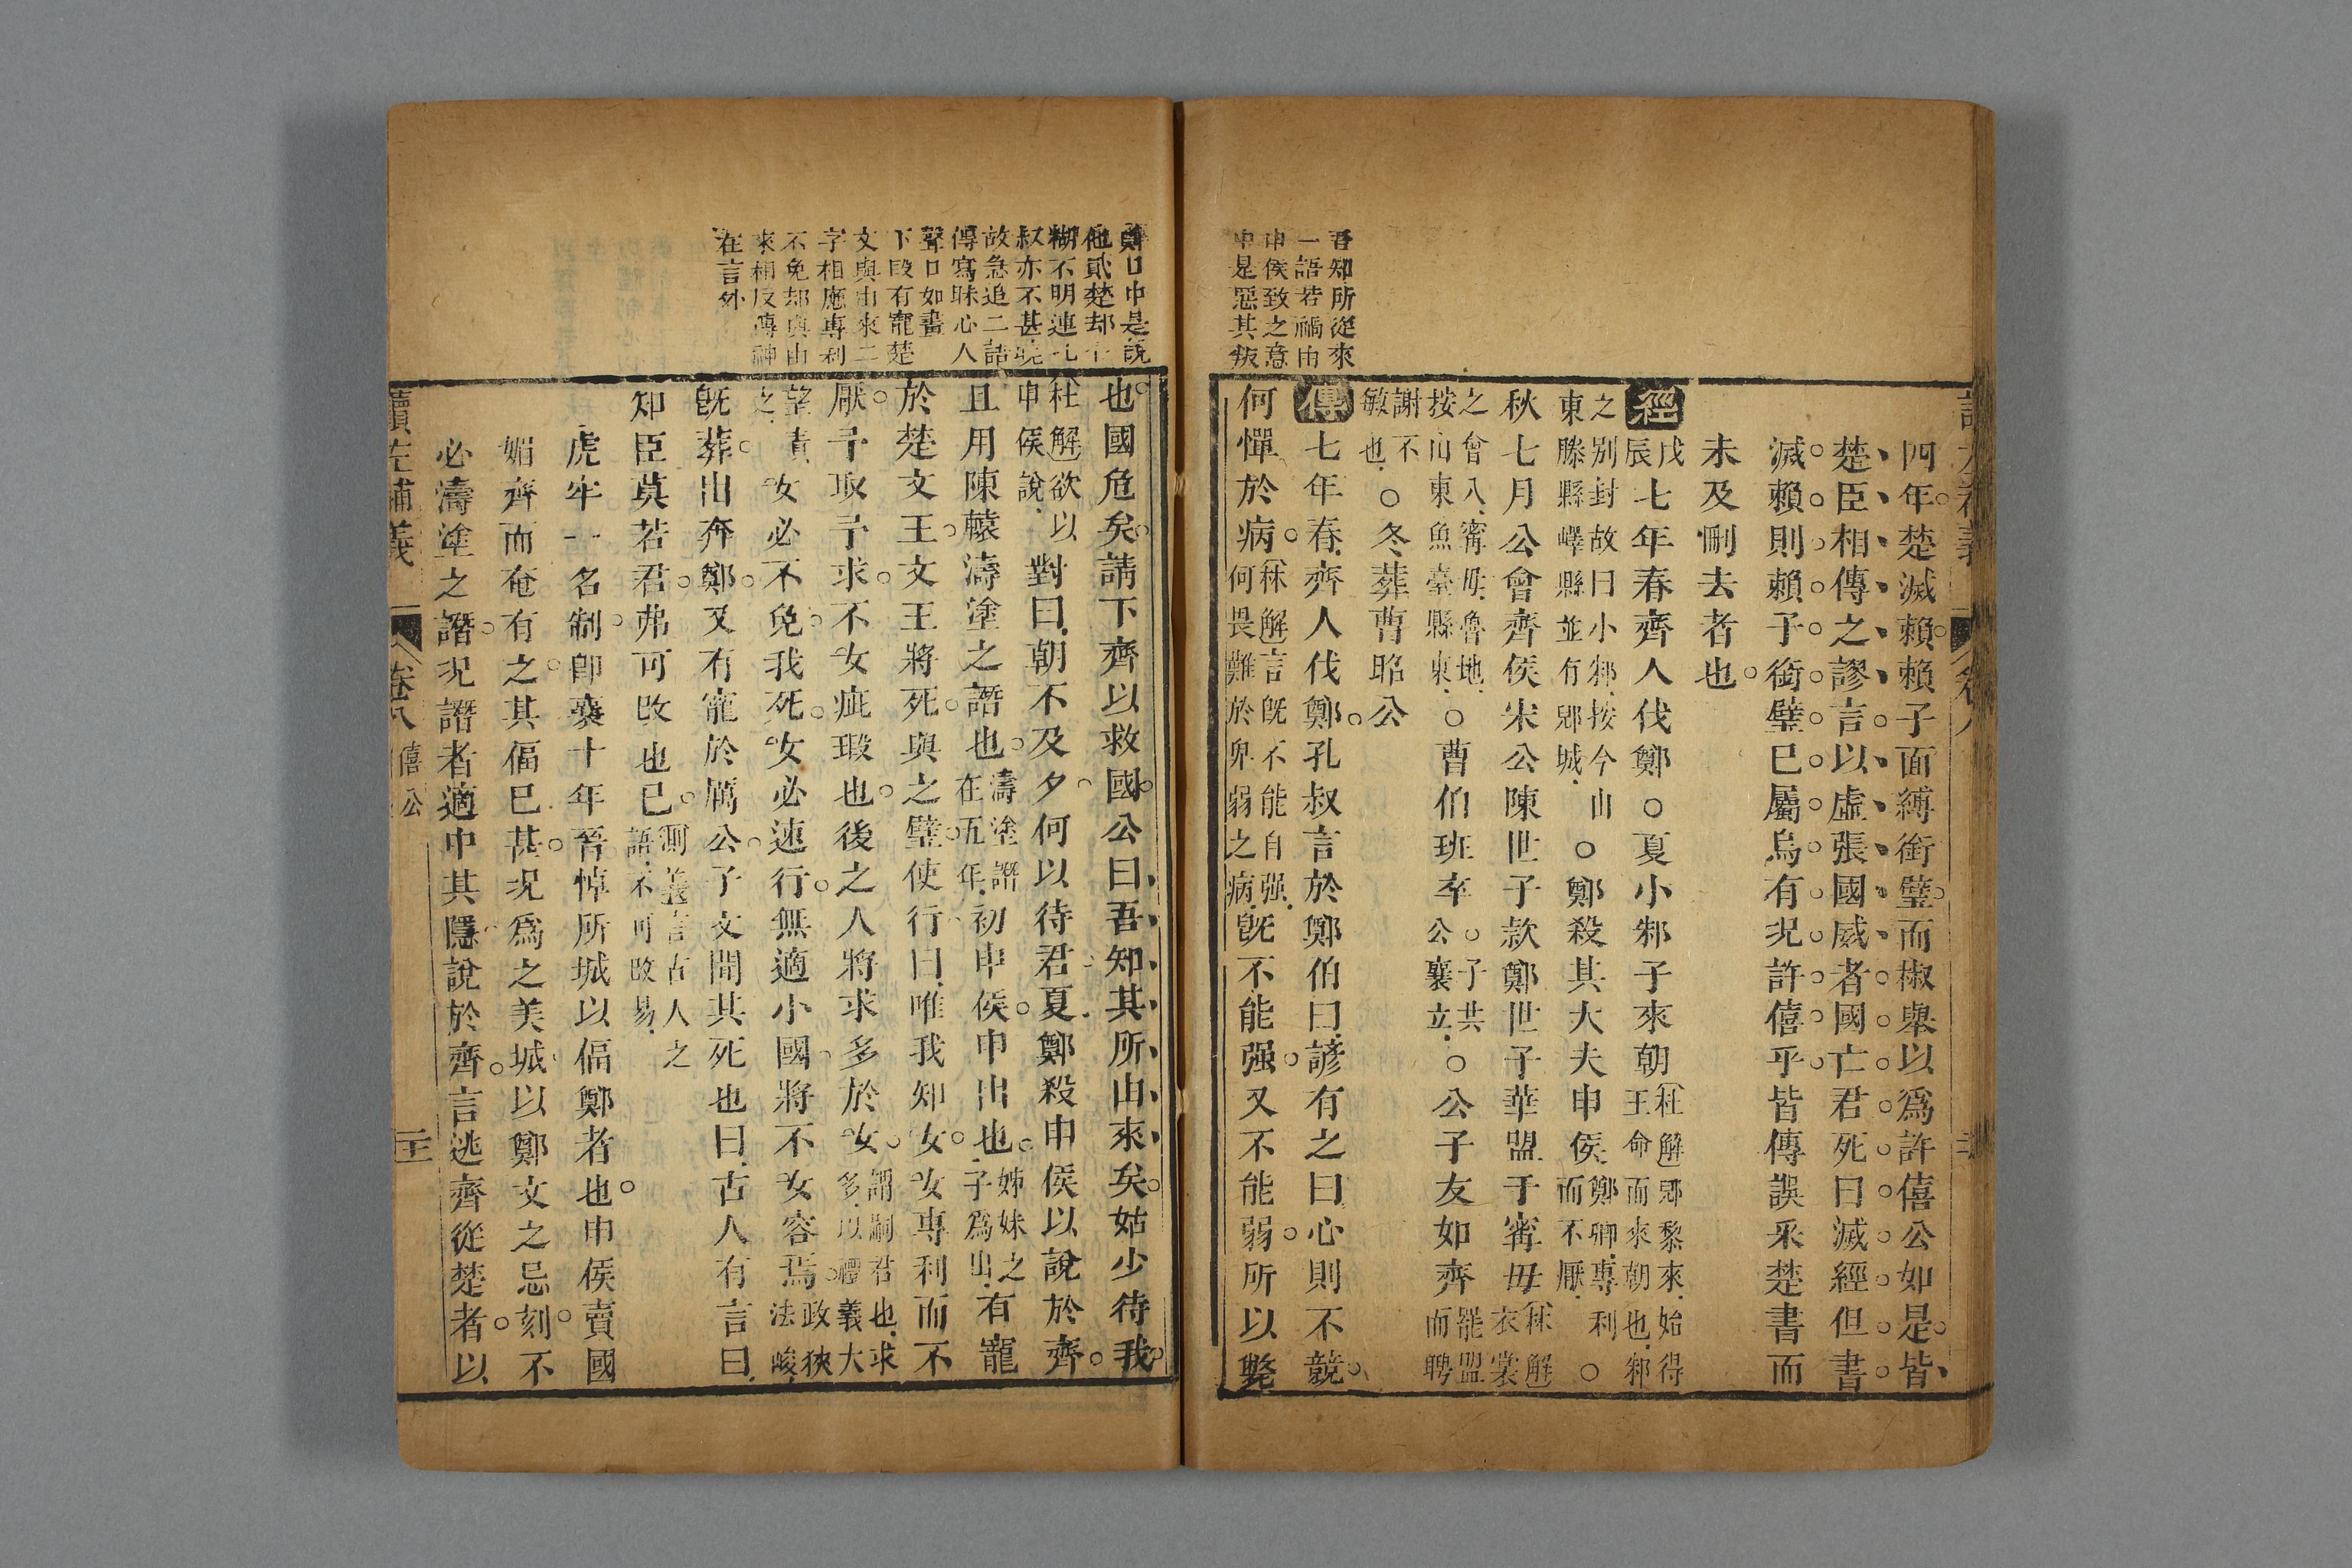 吾知所從來
一語若禍由
申侯致之意
中是惡其叛
四年楚滅賴賴子面縛銜璧而椒舉以爲許僖公如是皆
楚臣相傳之謬言以虛張國威者國亡君死曰滅經但書
滅賴則賴子銜璧已屬烏有況許僖乎皆傳誤采楚書而
未及刪去者也
經 戊辰 七年春齊人伐鄭○夏小邾子來朝 杜解郳黎來始得王命而來朝也邾
之別封故曰小邾按今山東滕縣嶧縣並有郳城 ○鄭殺其大夫申侯 鄭卿專利而不厭 ○
秋七月公會齊侯宋公陳世子款鄭世子華盟于甯毋 林解衣裳
之會八甯毋魯地按山東魚臺縣東 ○曹伯班卒 子共公襄立 ○公子友如齊 罷盟而聘
謝不敏也 ○冬葬曹昭公
傳 七年春齊人伐鄭孔叔言於鄭伯曰諺有之曰心則不競
何憚於病 林解言旣不能自强何畏難於卑弱之病 旣不能强又不能弱所以斃
讀左補義 卷八 僖公 二十
中是說
不明連孔
叔亦不甚曉
故急追二語
傳寫昧心人
聲口如畫
下段有寵楚
文與由來二
字相應專利
不免却與由
來相反傳神
在言外
也國危矣請下齊以救國公曰吾知其所由來矣姑少待我
杜解欲以申侯說 對曰朝不及夕何以待君夏鄭殺申侯以說於齊
且用陳轅濤塗之譖也 濤塗譖在五年 初申侯申出也 姊妹之子爲出 有寵
於楚文王文王將死與之璧使行曰唯我知女女專利而不
厭予取予求不女疵瑕也後之人將求多於女 謂嗣君也求多以禮義大
望責之 女必不免我死女必速行無適小國將不女容焉 政狹法峻
旣葬出奔鄭又有寵於厲公子文聞其死也曰古人有言曰
知臣莫若君弗可改也已 測義言古人之語不可改易
虎牢一名制卽襄十年晉悼所城以偪鄭者也申侯賣國
媚齊而奄有之其偪已甚況爲之美城以鄭文之忌刻不
必濤塗之譖況譖者適中其隱說於齊言逃齊從楚者以